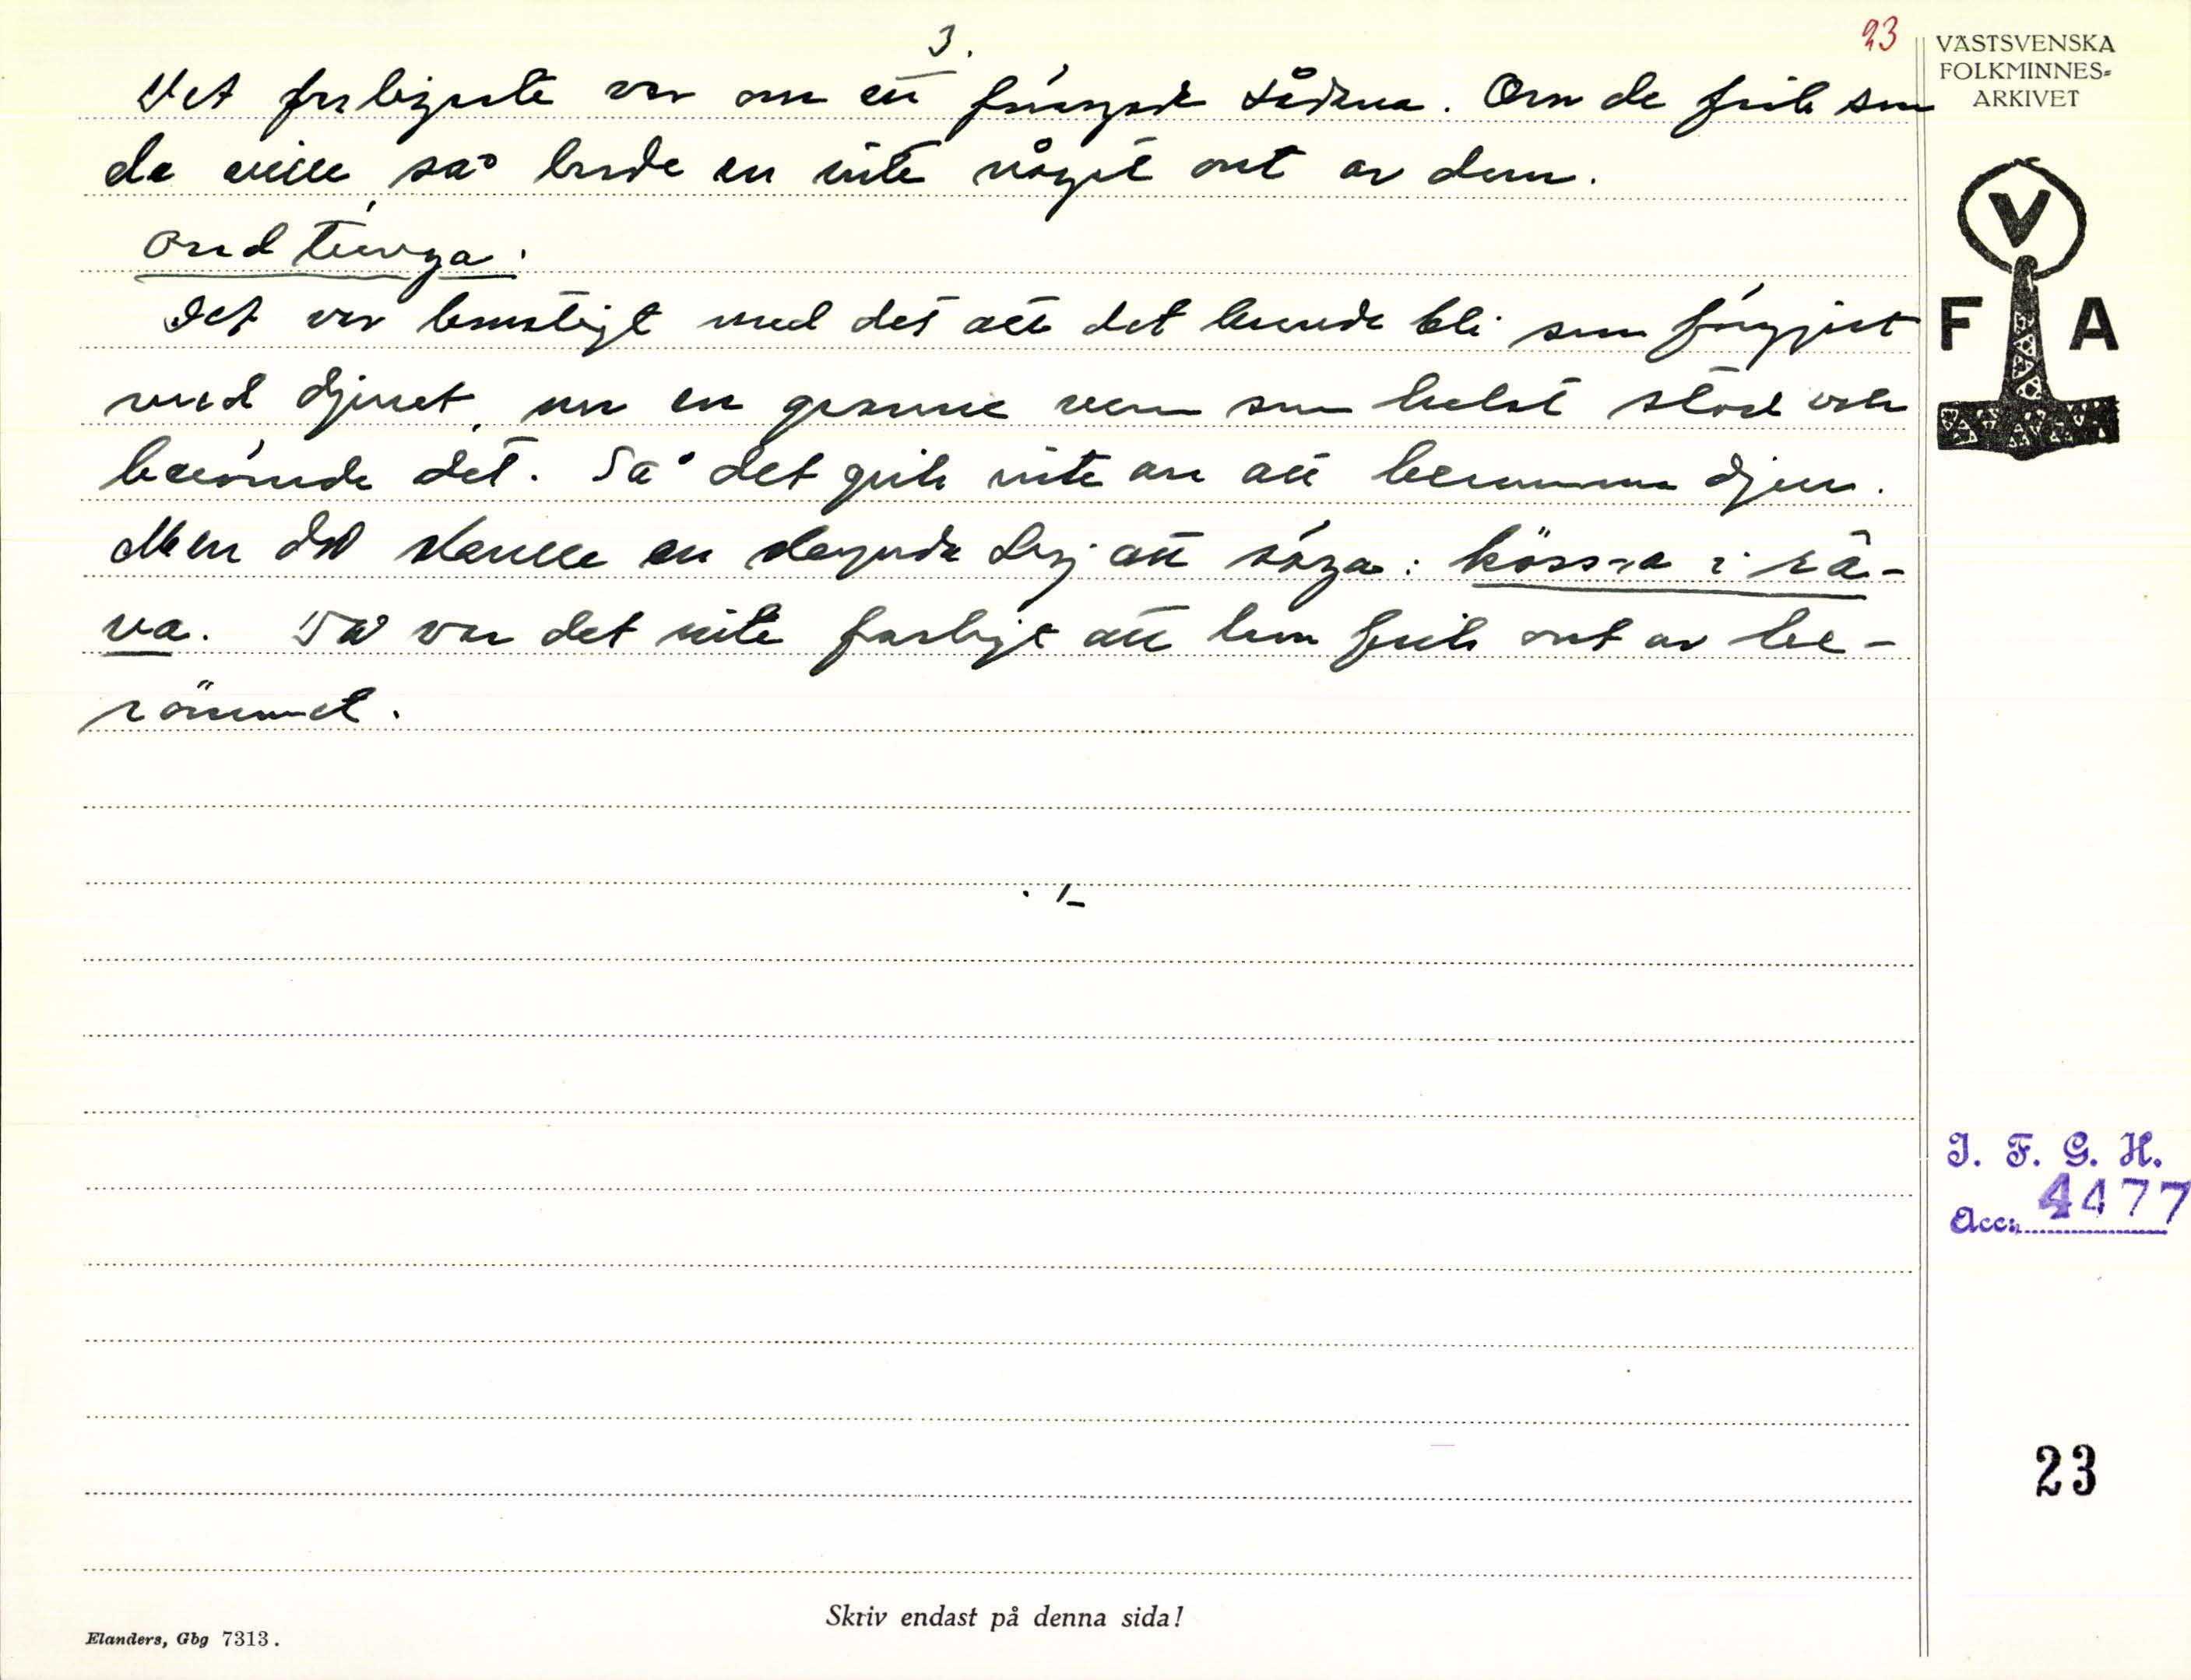 3.
23
VÄSTSVENSKA
FOLKMINNES=
ARKIVET
Det farligaste var om en förgjorde sådana. Om de fick som
de ville, så hade en inte något ont av dem.
V
F A
Ond tunga.
Det var konstigt med det att det kunde bli som förgjort
med djuret, om en granne vem som helst stod och
berömde det. Så det gick inte an att berömma djur.
Men då skulle en skynda sej att säga: köss-a i rä-
va. Då var det inte farligt att hon fick ont av be-
römmet.
. /_
I. F. G. H.
Acc: 4477
23
Skriv endast på denna sida!
Elanders, Gbg 7313.